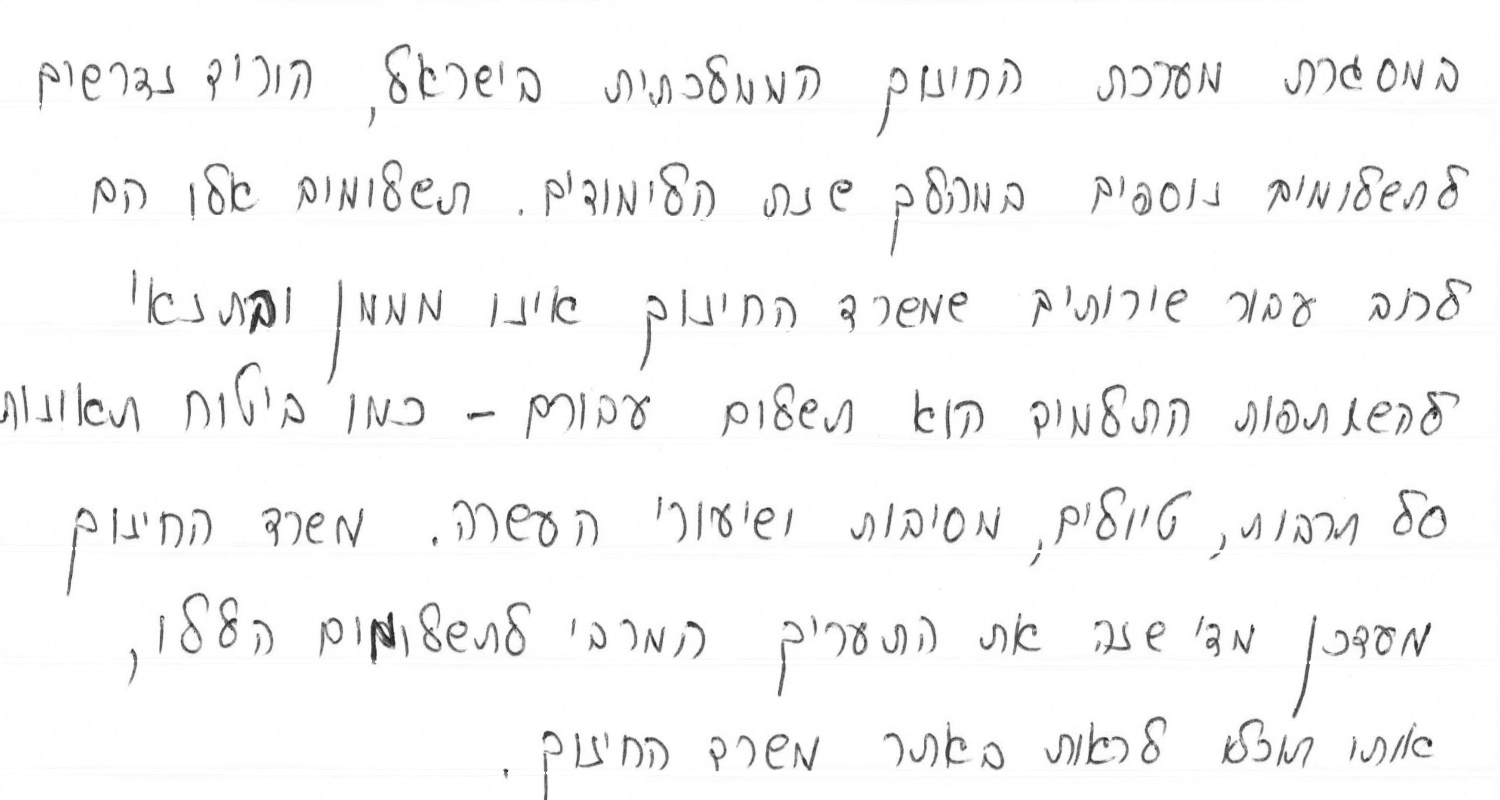 במסגרת מערכת החינוך הממלכתית בישראל, הוריד נדרשים
לתשלומים נוספים במהלך שנת הלימודים. תשלומים אלו הם
לרוב עבור שירותים שמשרד החינוך אינו מממן ובתנאי
להשתתפות התלמיד הוא תשלום עבורם - כמו ביטוח תאונות
סל תרבות, טיולים, מסיבות ושיעורי העשרה. משרד החינוך
מעדכן מדי שנה את התעריף המרבי לתשלומים הללו,
אותו תוכלו לראות באתר משרד החינוך.